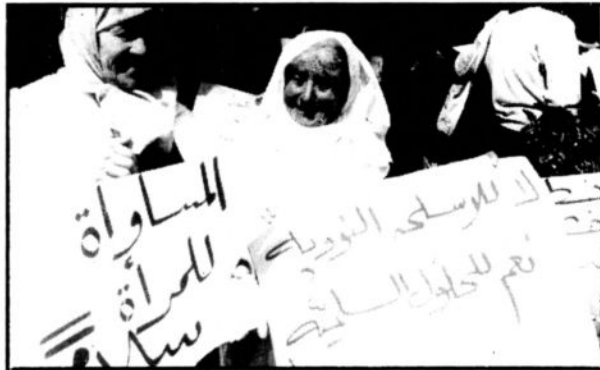 المساواة
للمرأة
= سلام
لا للأسلحة النووية
نعم للحلول السلمية